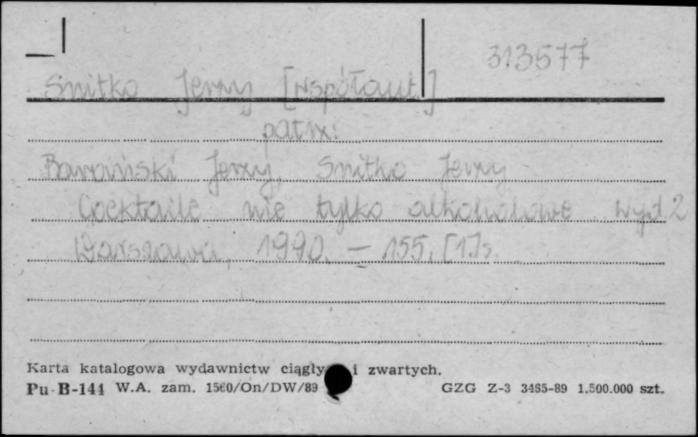 313577
Snitko Jerzy [współaut.]
patrz:
Barański Jerzy, Snitko Jerzy
Cocktaile nie tylko alkoholowe. wyd 2
Warszawa, 1990. — 155, [1]s.
Karta katalogowa wydawnictw ciągły i zwartych.
Pu-B-144 W.A. zam. 1560/On/DW/89 GZG Z-3 3485-89 1.500.000 szt.